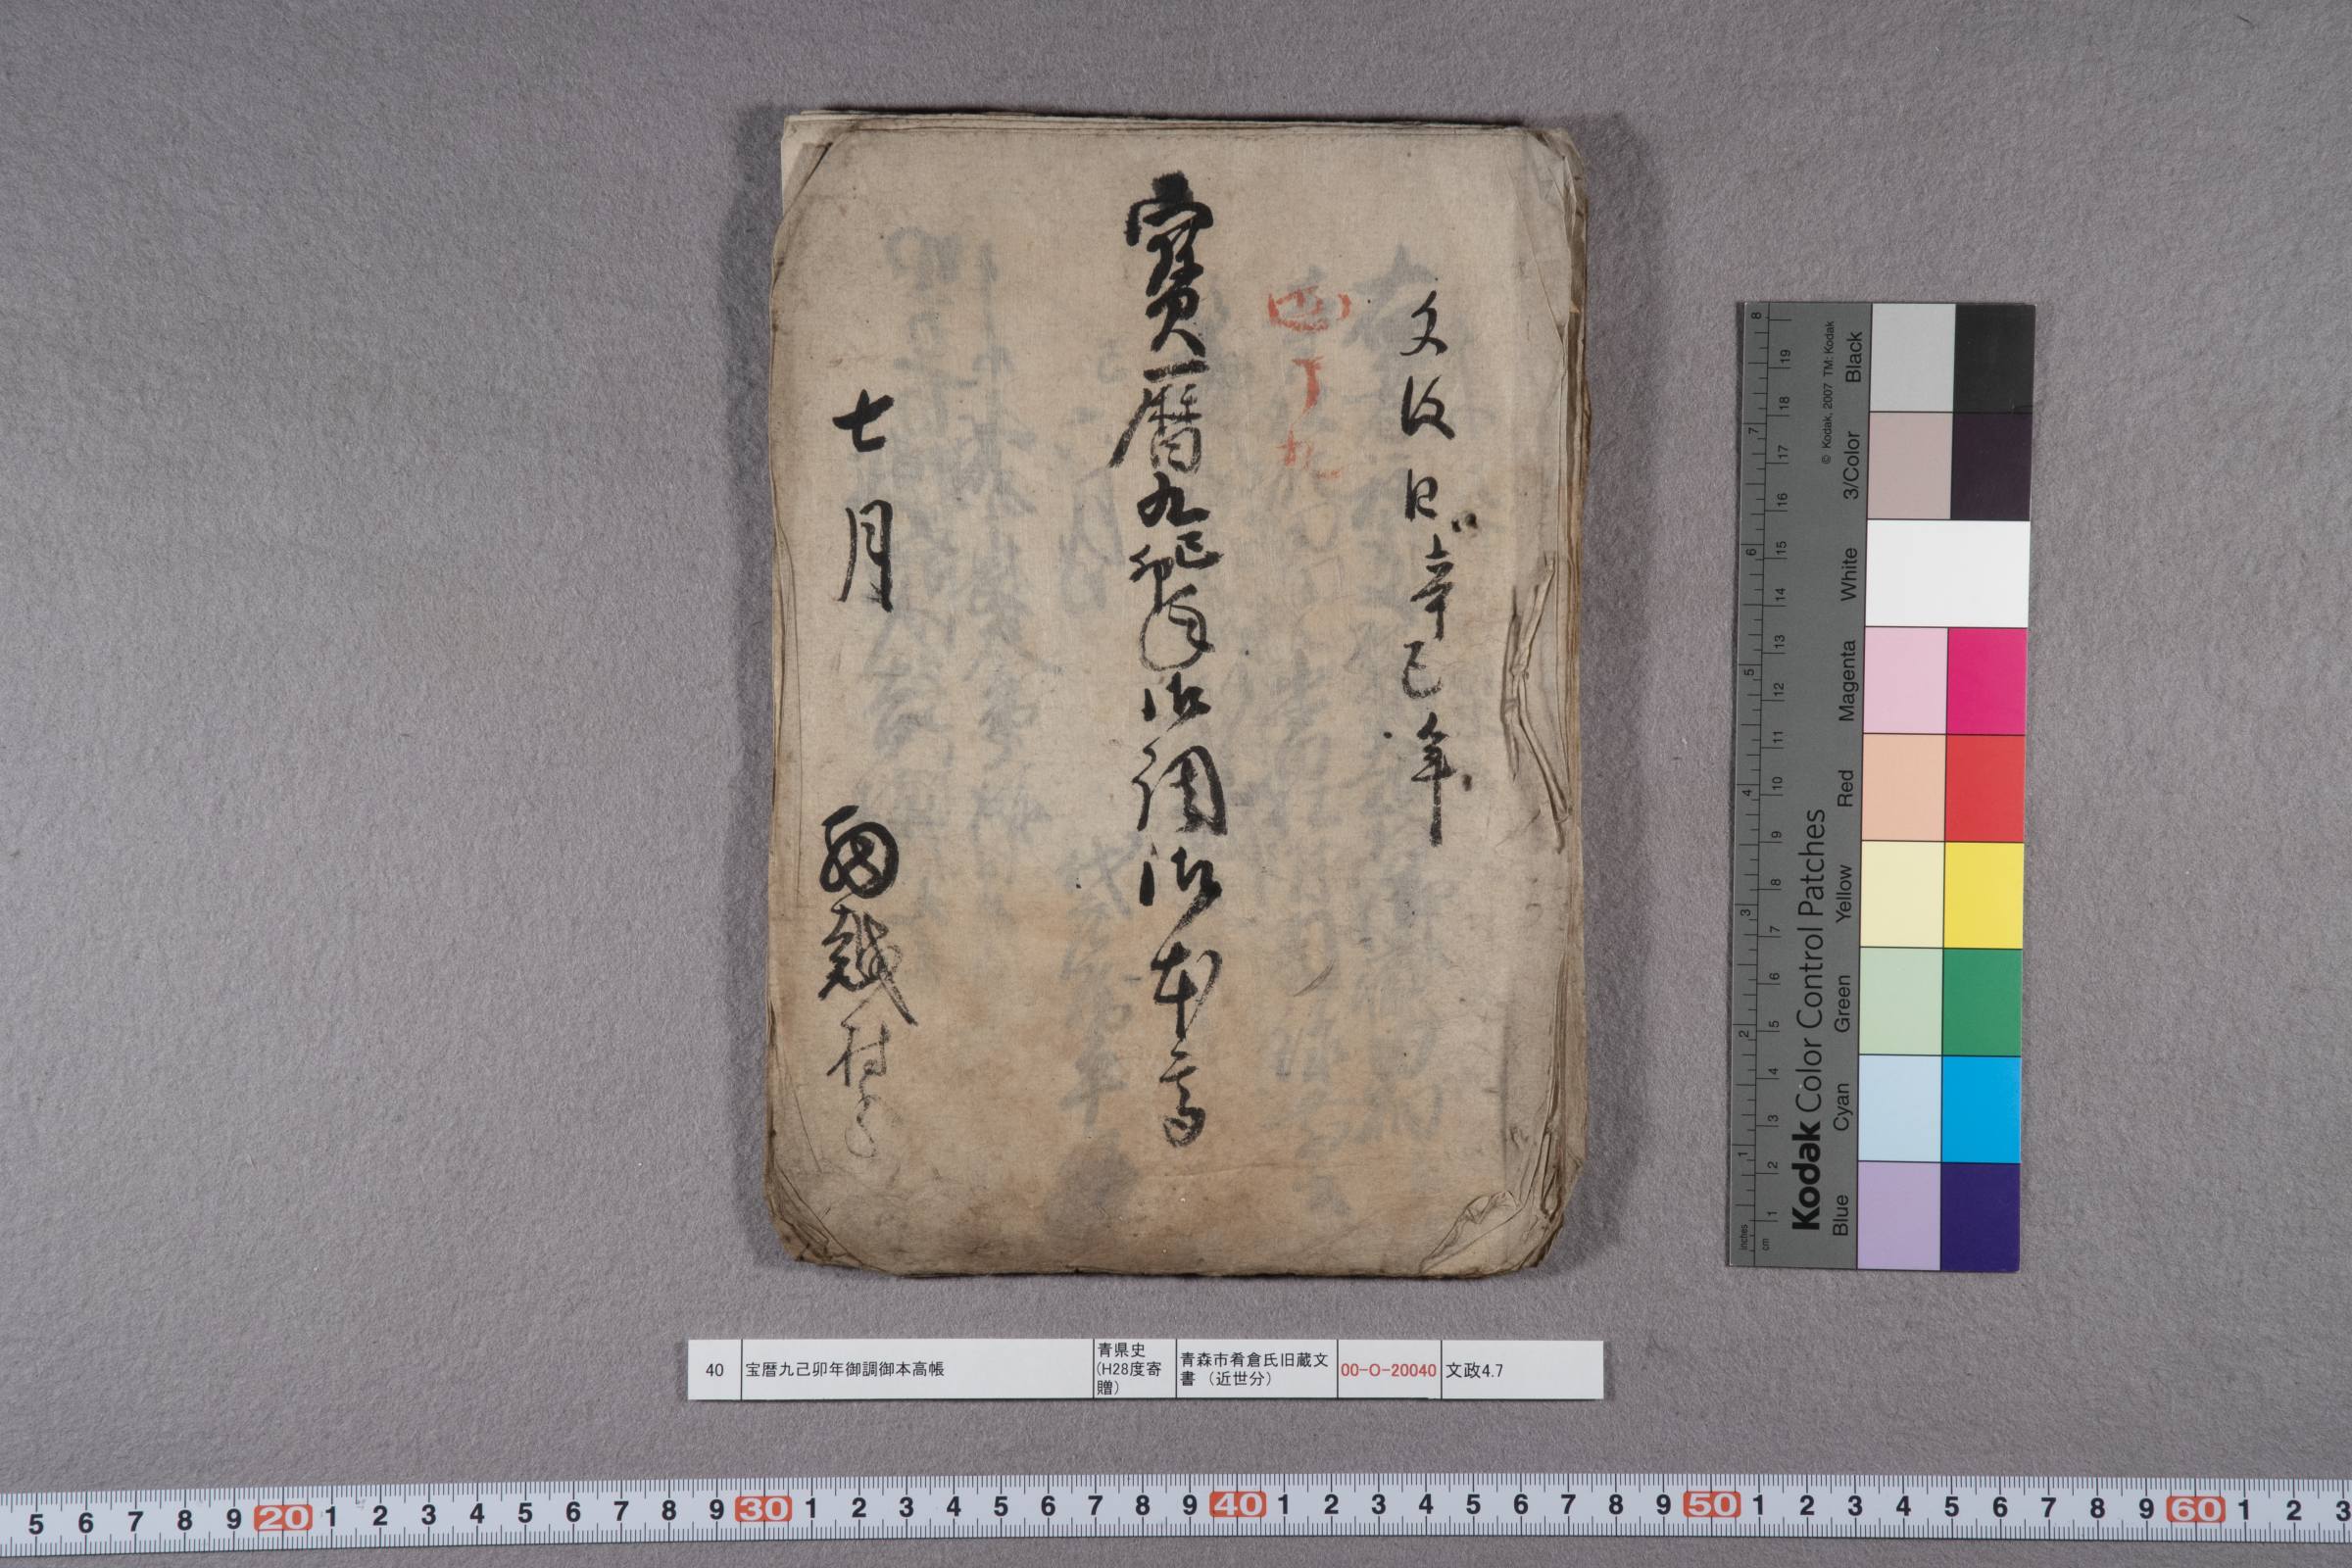 文政四辛巳年
寳暦九己卯年御調御本高
七月
細越村
40
宝暦九己卯年御調御本高帳
青県史
(H28度寄
贈)
青森市肴倉氏旧蔵文
書 (近世分)
00-O-20040
文政4.7
Kodak Color Control Patches
© Kodak, 2007 TM: Kodak
Blue Cyan Green Yellow Red Magenta White 3/Color Black
inches 1 2 3 4 5 6 7 8
cm 1 2 3 4 5 6 7 8 9 10 11 12 13 14 15 16 17 18 19
5 6 7 8 9 20 1 2 3 4 5 6 7 8 9 30 1 2 3 4 5 6 7 8 9 40 1 2 3 4 5 6 7 8 9 50 1 2 3 4 5 6 7 8 9 60 1 2 3